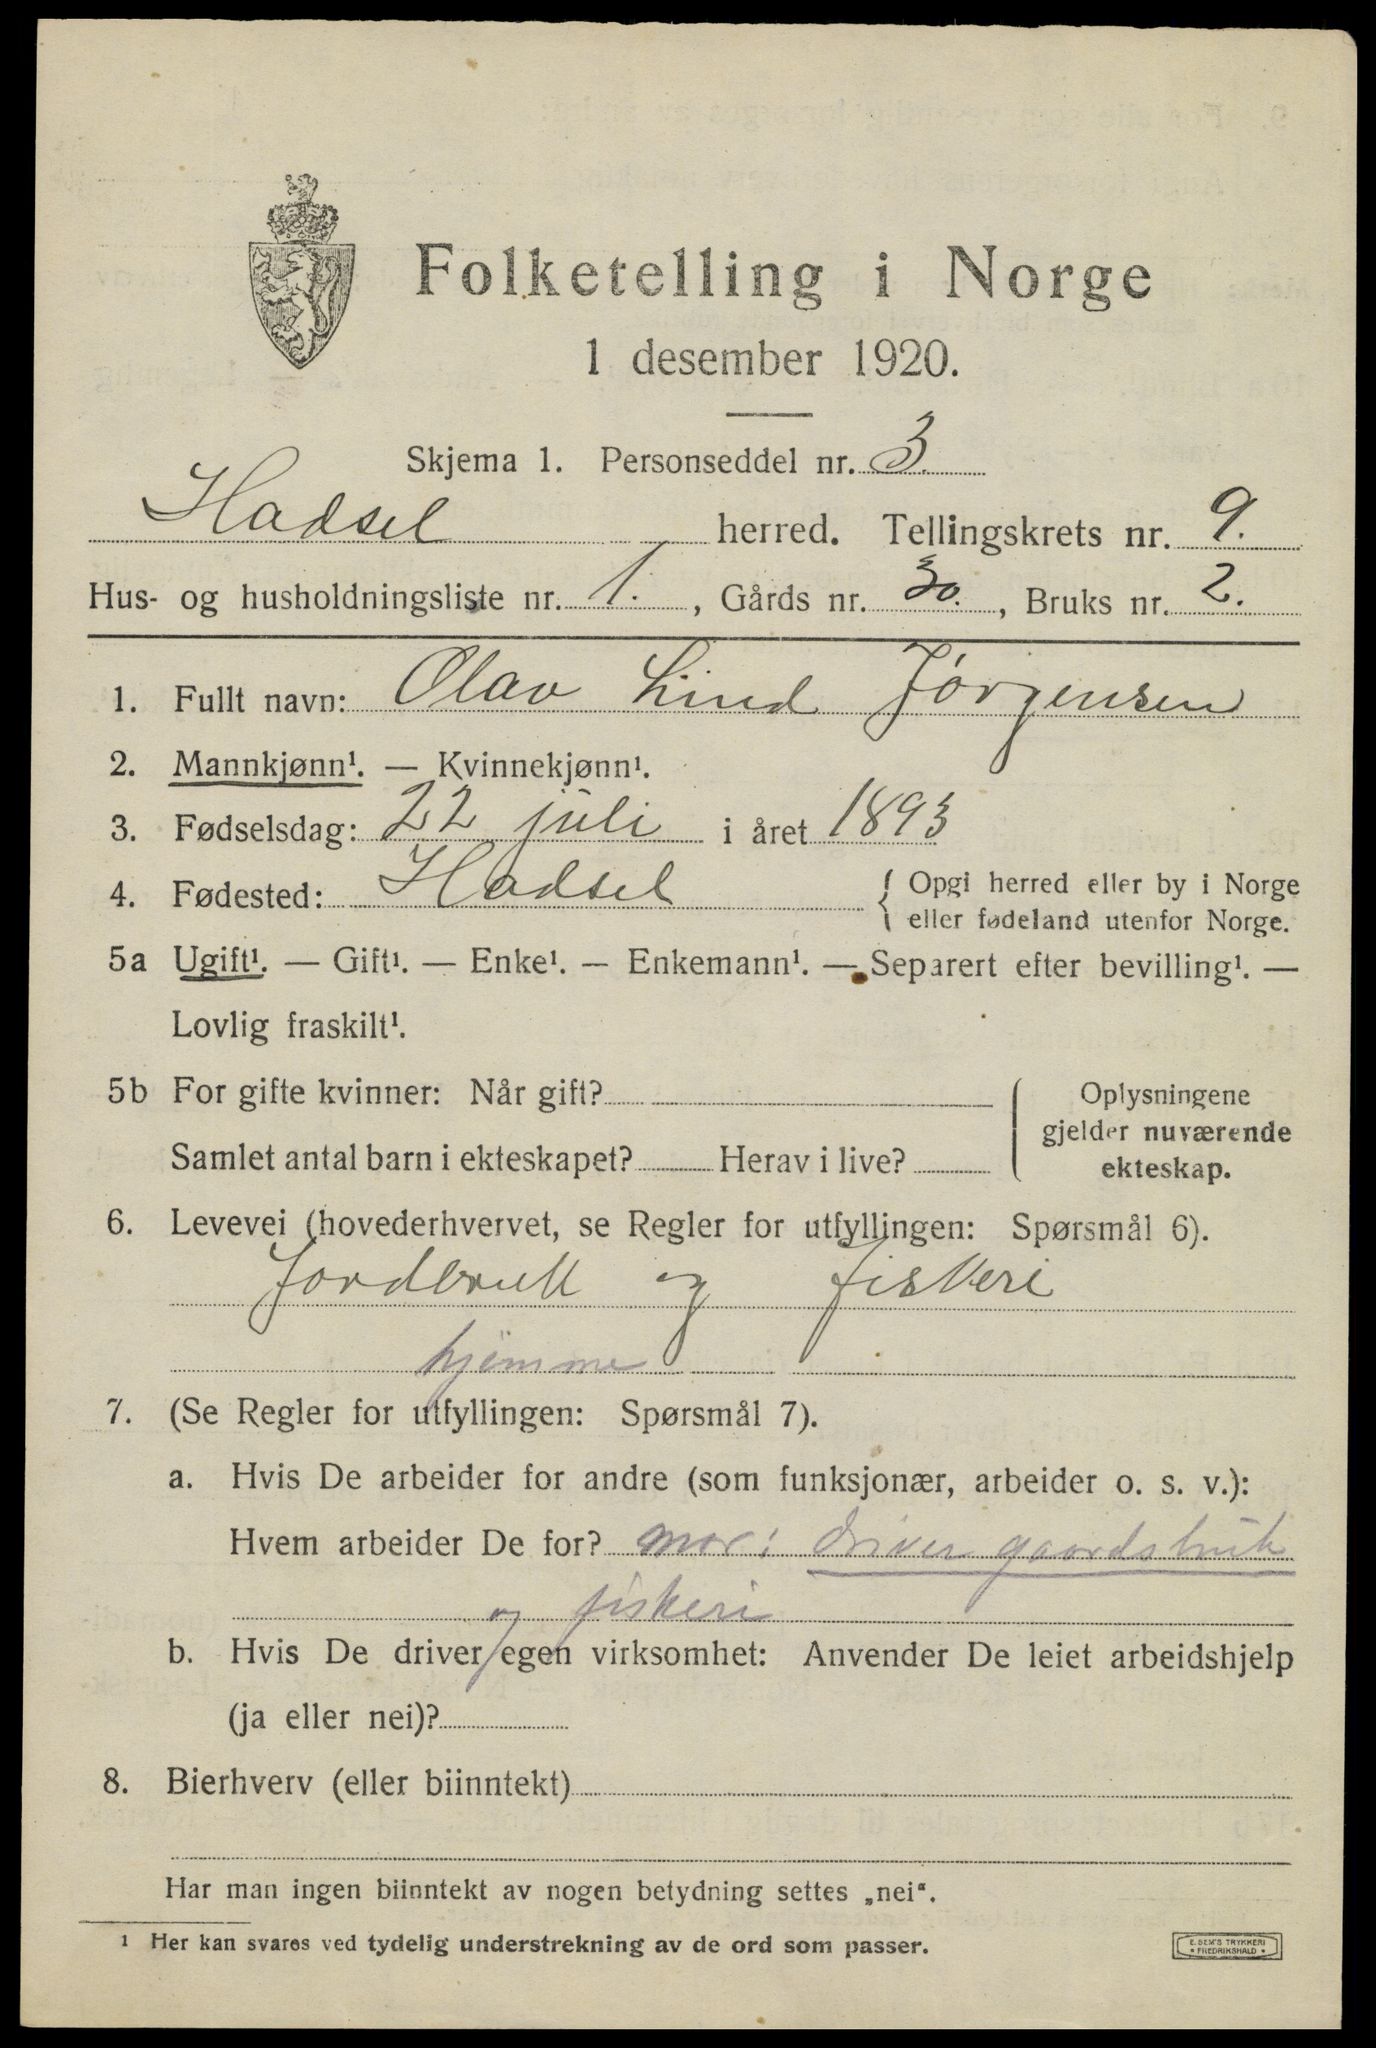 Folketelling i Norge
1 desember 1920.
Skjema 1. Personseddel nr. 3.
Hadsel herred. Tellingskrets nr. 9.
Hus- og husholdningsliste nr. 1. , Gårds nr. 30. , Bruks nr. 2.
1. Fullt navn: Olav Lind Jørgensen
2. Mannkjønn¹. — Kvinnekjønn¹.
3. Fødselsdag: 22 juli i året 1893
4. Fødested: Hadsel { Opgi herred eller by i Norge
eller fødeland utenfor Norge.
5a Ugift¹. — Gift¹. — Enke¹. — Enkemann¹. — Separert efter bevilling¹. —
Lovlig fraskilt¹.
5b For gifte kvinner: Når gift?
Samlet antal barn i ekteskapet? Herav i live?
Oplysningene
gjelder nuværende
ekteskap.
6. Levevei (hovederhvervet, se Regler for utfyllingen: Spørsmål 6).
Jordbruk og fiskeri
hjemme
7. (Se Regler for utfyllingen: Spørsmål 7).
a. Hvis De arbeider for andre (som funksjonær, arbeider o. s. v.):
Hvem arbeider De for? mor: driver gaardsbruk
og fiskeri
b. Hvis De driver egen virksomhet: Anvender De leiet arbeidshjelp
(ja eller nei)?
8. Bierhverv (eller biinntekt)
Har man ingen biinntekt av nogen betydning settes „nei“.
¹ Her kan svares ved tydelig understrekning av de ord som passer.
E. SEM'S TRYKKERI
• FREDRIKSHALD •